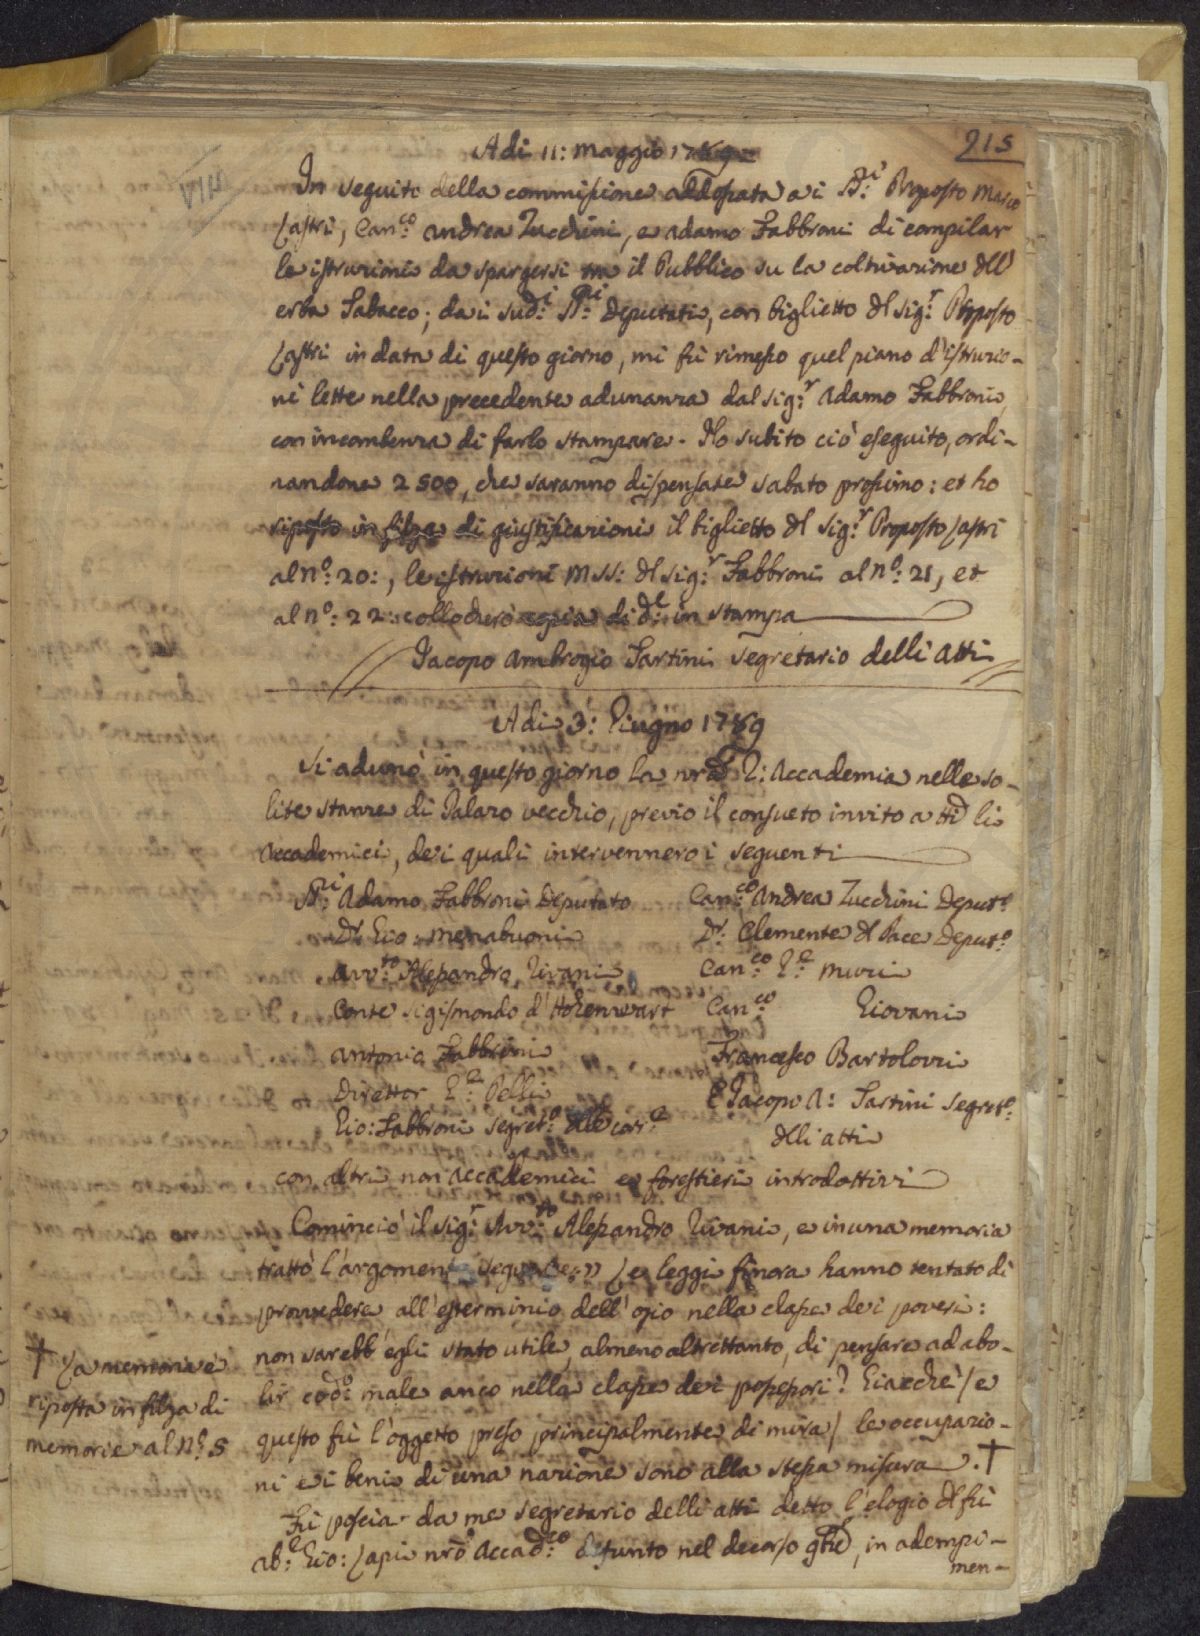 215
Adi 11: Maggio 1789
In seguito della commissione addossata a i SS:ri Proposto Marco
Lastri, Can:co Andrea Zucchini, e Adamo Fabbroni di compilar
le istruzioni da spargersi tra il Pubblico su la coltivazione dell'
erba Tabacco; da i sud:i SS:ri Deputati, con biglietto del Sig:r Proposto
Lastri in data di questo giorno, mi fù rimesso quel piano d'istruzio-
ni lette nella precedente adunanza dal Sig:r Adamo Fabbroni
con incombenza di farlo stampare. Ho subito ciò eseguito, ordi-
nandone 2500, che saranno dispensate sabato prossimo: et ho
riposto in filza di giustificazioni il biglietto del Sig:r Proposto Lastri
al n:o 20:, le istruzioni MSS: del Sig:r Fabbroni al n:o 21, et
al n:o 22: collocherò copia di d:e in stampa
Jacopo Ambrogio Tartini Segretario delli atti
Adi 3: Giugno 1789
Si adunò in questo giorno la nrã R: Accademia nelle so-
lite stanze di Palazo vecchio, previo il consueto invito a tti li
Accademici, de i quali intervennero i seguenti
SS:ri Adamo Fabbroni Deputato
Can:co Andrea Zucchini Deput:o
D:r Gio: Menabuoni
D:r Clemente del Pace Deput:o
Avv:to Alessandro Rivani
Can:co Muzi
Conte Sigismondo d'Hohenwart
Can:co Giovani
Antonio Fabbrini
Francesco Bartolozzi
Direttor Pelli
E Jacopo A: Tartini Segret:o
Gio: Fabbroni Segret:o delle corr:e
delli atti
con altri non Accademici e forestieri introdottivi
Cominciò il Sig:r Avv:to Alessandro Rivani, e in una memoria
trattò l'argomento seguente: Le leggi finora hanno tentato di
provvedere all'esterminio dell'ozio nella classe de i poveri:
non sarebb'egli stato utile, almeno altrettanto, di pensare ad abo-
lir cod:o male anco nella classe de i possessori? Giacchè / e
questo fù l'oggetto preso principalmente di mira / le occupazio-
ni e i beni di una nazione sono alla stessa misura. †
† La memoria è
riposta in filza di
memorie al N:o 5
Fù poscia da me Segretario delli atti detto l'elogio del fù
ab:e Gio: Lapi nrõ Accad:co defunto nel decorso, in adempi-
men-